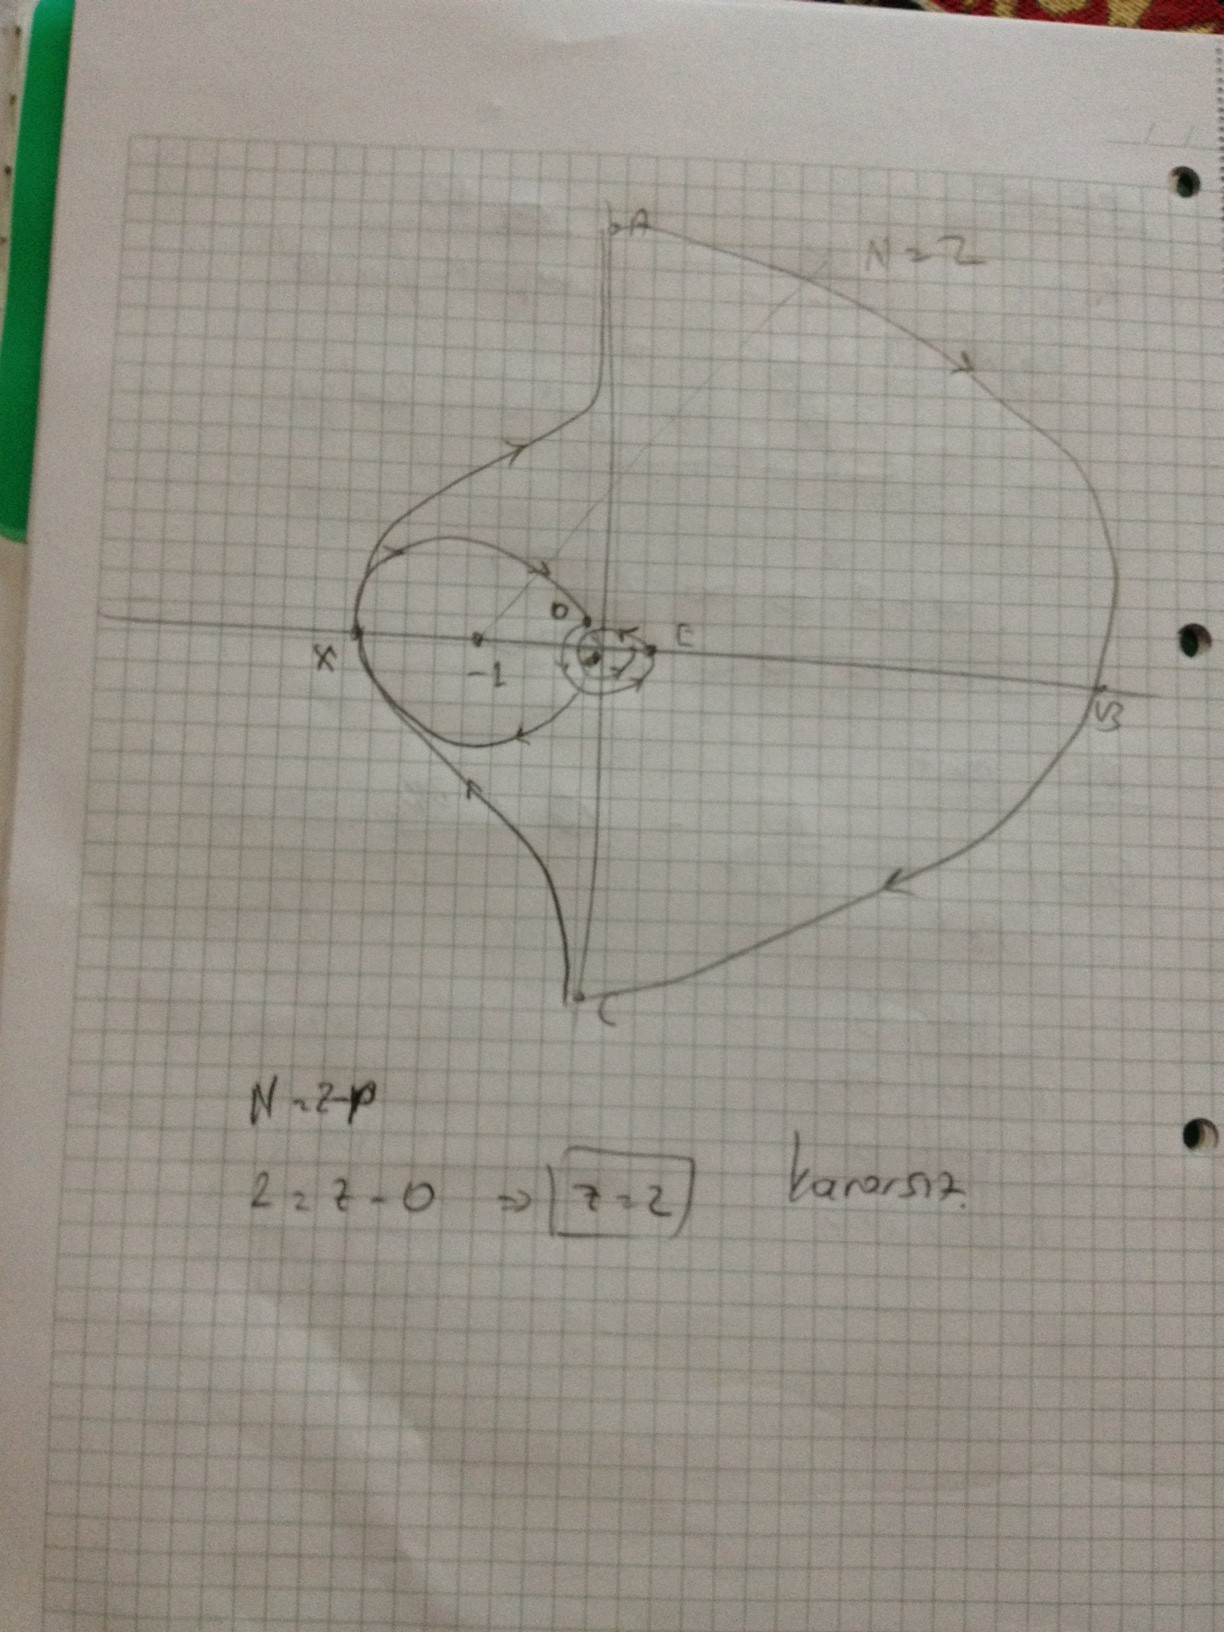 A
N = 2
D
E
X
-1
B
C
N = Z-P
2 = Z - 0 ⇒ Z = 2 kararsız.